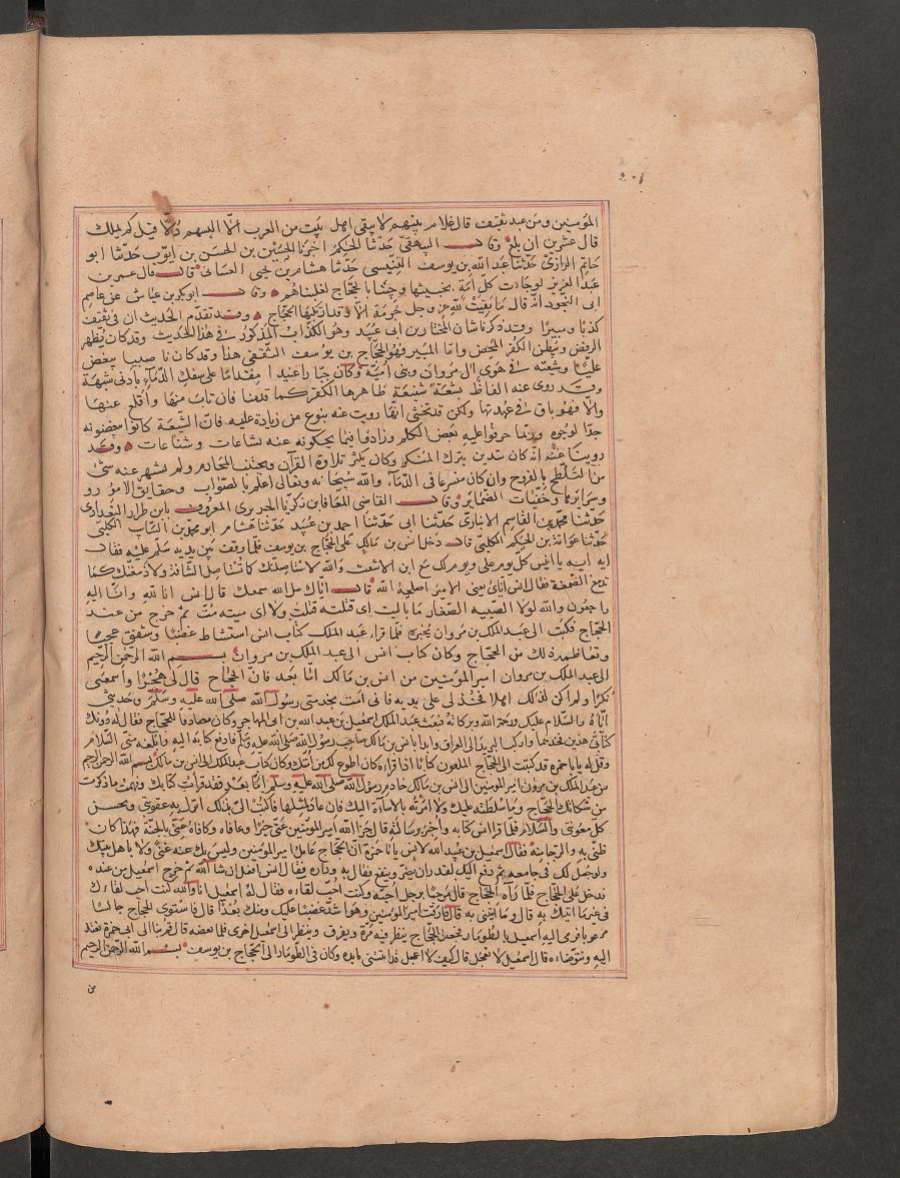 ٢٠١
المؤمنين ومن عبد ثقيف قال غلام بينهم لا يبقى اهل بيت من العرب الا البسهم ذلا قيل كم يملك
قال عشرين ان بلغ وقال البيهقي حدثنا الحاكم اخبرنا الحسين بن الحسن بن ايوب حدثنا ابو
حاتم الرازي حدثنا عبد الله بن يوسف التنيسي حدثنا هشام بن يحيى الغساني قال قال عمر بن
عبد العزيز لو جاءت كل امة بخبيثها وجئنا بالحجاج لغلبناهم وقال ابو بكر بن عياش عن عاصم
ابن ابي النجود انه قال ما بقيت لله عز وجل حرمة الا وقد ارتكبها الحجاج وقد تقدم الحديث ان في ثقيف
كذابا ومبيرا وقد ذكرنا شان المختار بن ابي عبيد وهو الكذاب المذكور في هذا الحديث وقد كان يظهر
الرفض ويبطن الكفر المحض واما المبير فهو الحجاج بن يوسف الثقفي هذا وقد كان ناصبيا يبغض
عليا وشيعته في هوى ال مروان وبني امية وكان جبارا عنيدا مقداما على سفك الدماء بادنى شبهة
وقد روي عنه الفاظ بشعة شنيعة ظاهرها الكفر كما قلنا فان تاب منها واقلع عنها
والا فهو باق في عهدتها ولكن قد يخشى انها رويت عنه بنوع من زيادة عليه فان الشيعة كانوا يبغضونه
جدا لوجوه وربما حرفوا عليه بعض الكلم وزادوا فيما يحكونه عنه بشاعات وشناعات وقد
روينا عنه انه كان يتدين بترك المسكر وكان يكثر تلاوة القرآن ويجتنب المحارم ولم يشهر عنه شئ
من التلطخ بالفروج وان كان متسرعا في الدماء والله سبحانه وتعالى اعلم بالصواب وحقايق الامور
وسرايرها وخفيات الضماير وقال القاضي المعافا بن زكريا الجريري المعروف بابن طرار البغدادي
حدثنا محمد بن القاسم الانباري حدثنا ابي حدثنا احمد بن عبيد حدثنا هشام ابو محمد بن السايب الكلبي
حدثنا عوانة بن الحكم الكلبي قال دخل انس بن مالك على الحجاج بن يوسف فلما وقف بين يديه سلم عليه فقال
ايه ايه يا انيس يوم لك مع علي ويوم لك مع ابن الاشعث والله لاستاصلنك كما تستاصل الشافة ولادمغنك كما
تدمغ الصمغة فقال انس اياي يعني الامير اصلحه الله قال اياك سك الله سمعك قال انس انا لله وانا اليه
راجعون والله لولا الصبية الصغار ما باليت اي قتلة قتلت ولا اي ميتة مت ثم خرج من عند
الحجاج فكتب الى عبد الملك بن مروان يخبره فلما قراء عبد الملك كتاب انس استشاط غضبا وصفق عجبا
وتعاظمه ذلك من الحجاج وكان كتاب انس الى عبد الملك بن مروان بسم الله الرحمن الرحيم
الى عبد الملك بن مروان امير المؤمنين من انس بن مالك اما بعد فان الحجاج قال لي هجرا واسمعني
نكرا ولم اكن لذلك اهلا فخذ لي على يديه فاني امت بخدمتي رسول الله صلى الله عليه وسلم وصحبتي
اياه والسلام عليك ورحمة الله وبركاته فبعث عبد الملك اسمعيل بن عبد الله بن ابي المهاجر وكان مصادقا للحجاج فقال له دونك
كتابي هذين فخذهما واركب البريد الى العراق وابدا بانس بن مالك صاحب رسول الله صلى الله عليه وسلم فادفع كتابه اليه وابلغه مني السلام
وقل له يا با حمزة قد كتبت الى الحجاج الملعون كتابا اذا قراه كان اطوع لك من امتك وكان كتاب عبد الملك الى انس بن مالك بسم الله الرحمن الرحيم
من عبد الملك بن مروان امير المؤمنين الى انس بن مالك خادم رسول الله صلى الله عليه وسلم اما بعد فقد قرات كتابك وفهمت ما ذكرت
من شكايتك الحجاج وما سلطته عليك ولا امرته بالاساءة اليك فان عاد لمثلها فاكتب الي بذلك انزل به عقوبتي وتحسن
لك معونتي والسلام فلما قرا انس كتابه واخبر برسالته قال جزا الله امير المؤمنين عني خيرا وعافاه وكافاه عني بالجنة فهذا كان
ظني به والرجا منه فقال اسمعيل بن عبيد الله لانس يا با حمزة ان الحجاج عامل امير المؤمنين وليس بك عنه غنى ولا باهل بيتك
ولو جعل لك في جامعة ثم دفع اليك لقدر ان يضر وينفع فقاربه وداره فقال انس افعل ان شا الله ثم خرج اسمعيل من عنده
فدخل على الحجاج فلما رآه الحجاج قال مرحبا برجل احبه وكنت احب لقاءه فقال له اسمعيل انا والله كنت احب لقاءك
في غير ما اتيتك به قال وما اتيتني به قال فارقت امير المؤمنين وهو اشد غضبا عليك ومنك بعدا قال فاستوى الحجاج جالسا
مرعوبا فرمى اليه اسمعيل بالطومار فجعل الحجاج ينظر فيه مرة ويعرق وينظر الى اسمعيل اخرى فلما نفضه قال قم بنا الى ابي حمزة نعتذر
اليه ونترضاه قال اسمعيل لا تعجل قال كيف لا اعجل وقد اتيتني بابدة وكان في الطومار الى الحجاج بن يوسف بسم الله الرحمن الرحيم
من